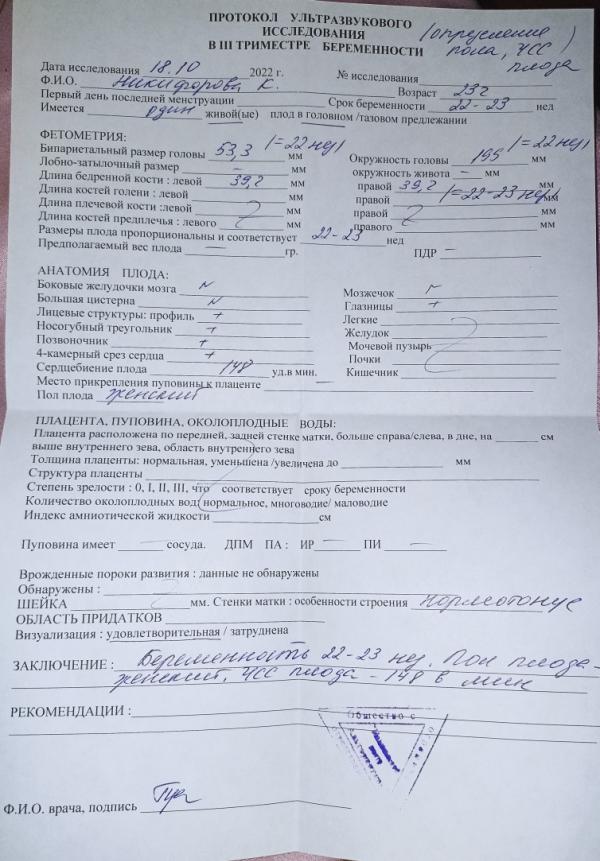 ПРОТОКОЛ УЛЬТРАЗВУКОВОГО
ИССЛЕДОВАНИЯ
В III ТРИМЕСТРЕ БЕРЕМЕННОСТИ
(определение
пола, ЧСС
плода)
Дата исследования 18.10 2022 г. № исследования
Ф.И.О. Никифорова К. Возраст 23 г
Первый день последней менструации Срок беременности 22-23 нед
Имеется один живой(ые) плод в головном /тазовом предлежании
ФЕТОМЕТРИЯ:
Бипариетальный размер головы 53,3 (=22 нед) мм Окружность головы 195 (=22 нед) мм
Лобно-затылочный размер – мм окружность живота – мм
Длина бедренной кости : левой 39,2 мм правой 39,2 (=22-23 нед) мм
Длина костей голени : левой мм правой мм
Длина плечевой кости :левой мм правой мм
Длина костей предплечья : левого мм правого мм
Размеры плода пропорциональны и соответствует 22-23 нед
Предполагаемый вес плода – гр. ПДР –
АНАТОМИЯ ПЛОДА:
Боковые желудочки мозга N Мозжечок
Большая цистерна N Глазницы +
Лицевые структуры: профиль + Легкие
Носогубный треугольник + Желудок
Позвоночник + Мочевой пузырь
4-камерный срез сердца + Почки
Сердцебиение плода 148 уд.в мин. Кишечник
Место прикрепления пуповины к плаценте –
Пол плода женский
ПЛАЦЕНТА, ПУПОВИНА, ОКОЛОПЛОДНЫЕ ВОДЫ:
Плацента расположена по передней, задней стенке матки, больше справа/слева, в дне, на см
выше внутреннего зева, область внутреннего зева
Толщина плаценты: нормальная, уменьшена /увеличена до мм
Структура плаценты
Степень зрелости : 0, I, II, III, что соответствует сроку беременности
Количество околоплодных вод: нормальное, многоводие/ маловодие
Индекс амниотической жидкости см
Пуповина имеет – сосуда. ДПМ ПА : ИР – ПИ –
Врожденные пороки развития : данные не обнаружены
Обнаружены :
ШЕЙКА мм. Стенки матки : особенности строения Нормотонус
ОБЛАСТЬ ПРИДАТКОВ
Визуализация : удовлетворительная / затруднена
ЗАКЛЮЧЕНИЕ : Беременность 22-23 нед. Пол плода -
женский, ЧСС плода - 148 в мин
РЕКОМЕНДАЦИИ :
Общество с
Ф.И.О. врача, подпись